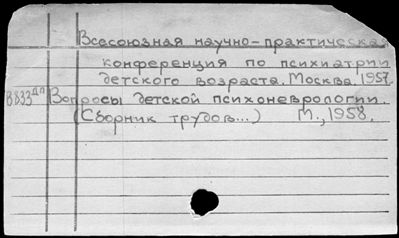 Всесоюзная научно-практическая
конференция по психиатрии
детского возраста. Москва. 1957.
8833дп Вопросы детской психоневрологии.
(Сборник трудов...) М., 1958.